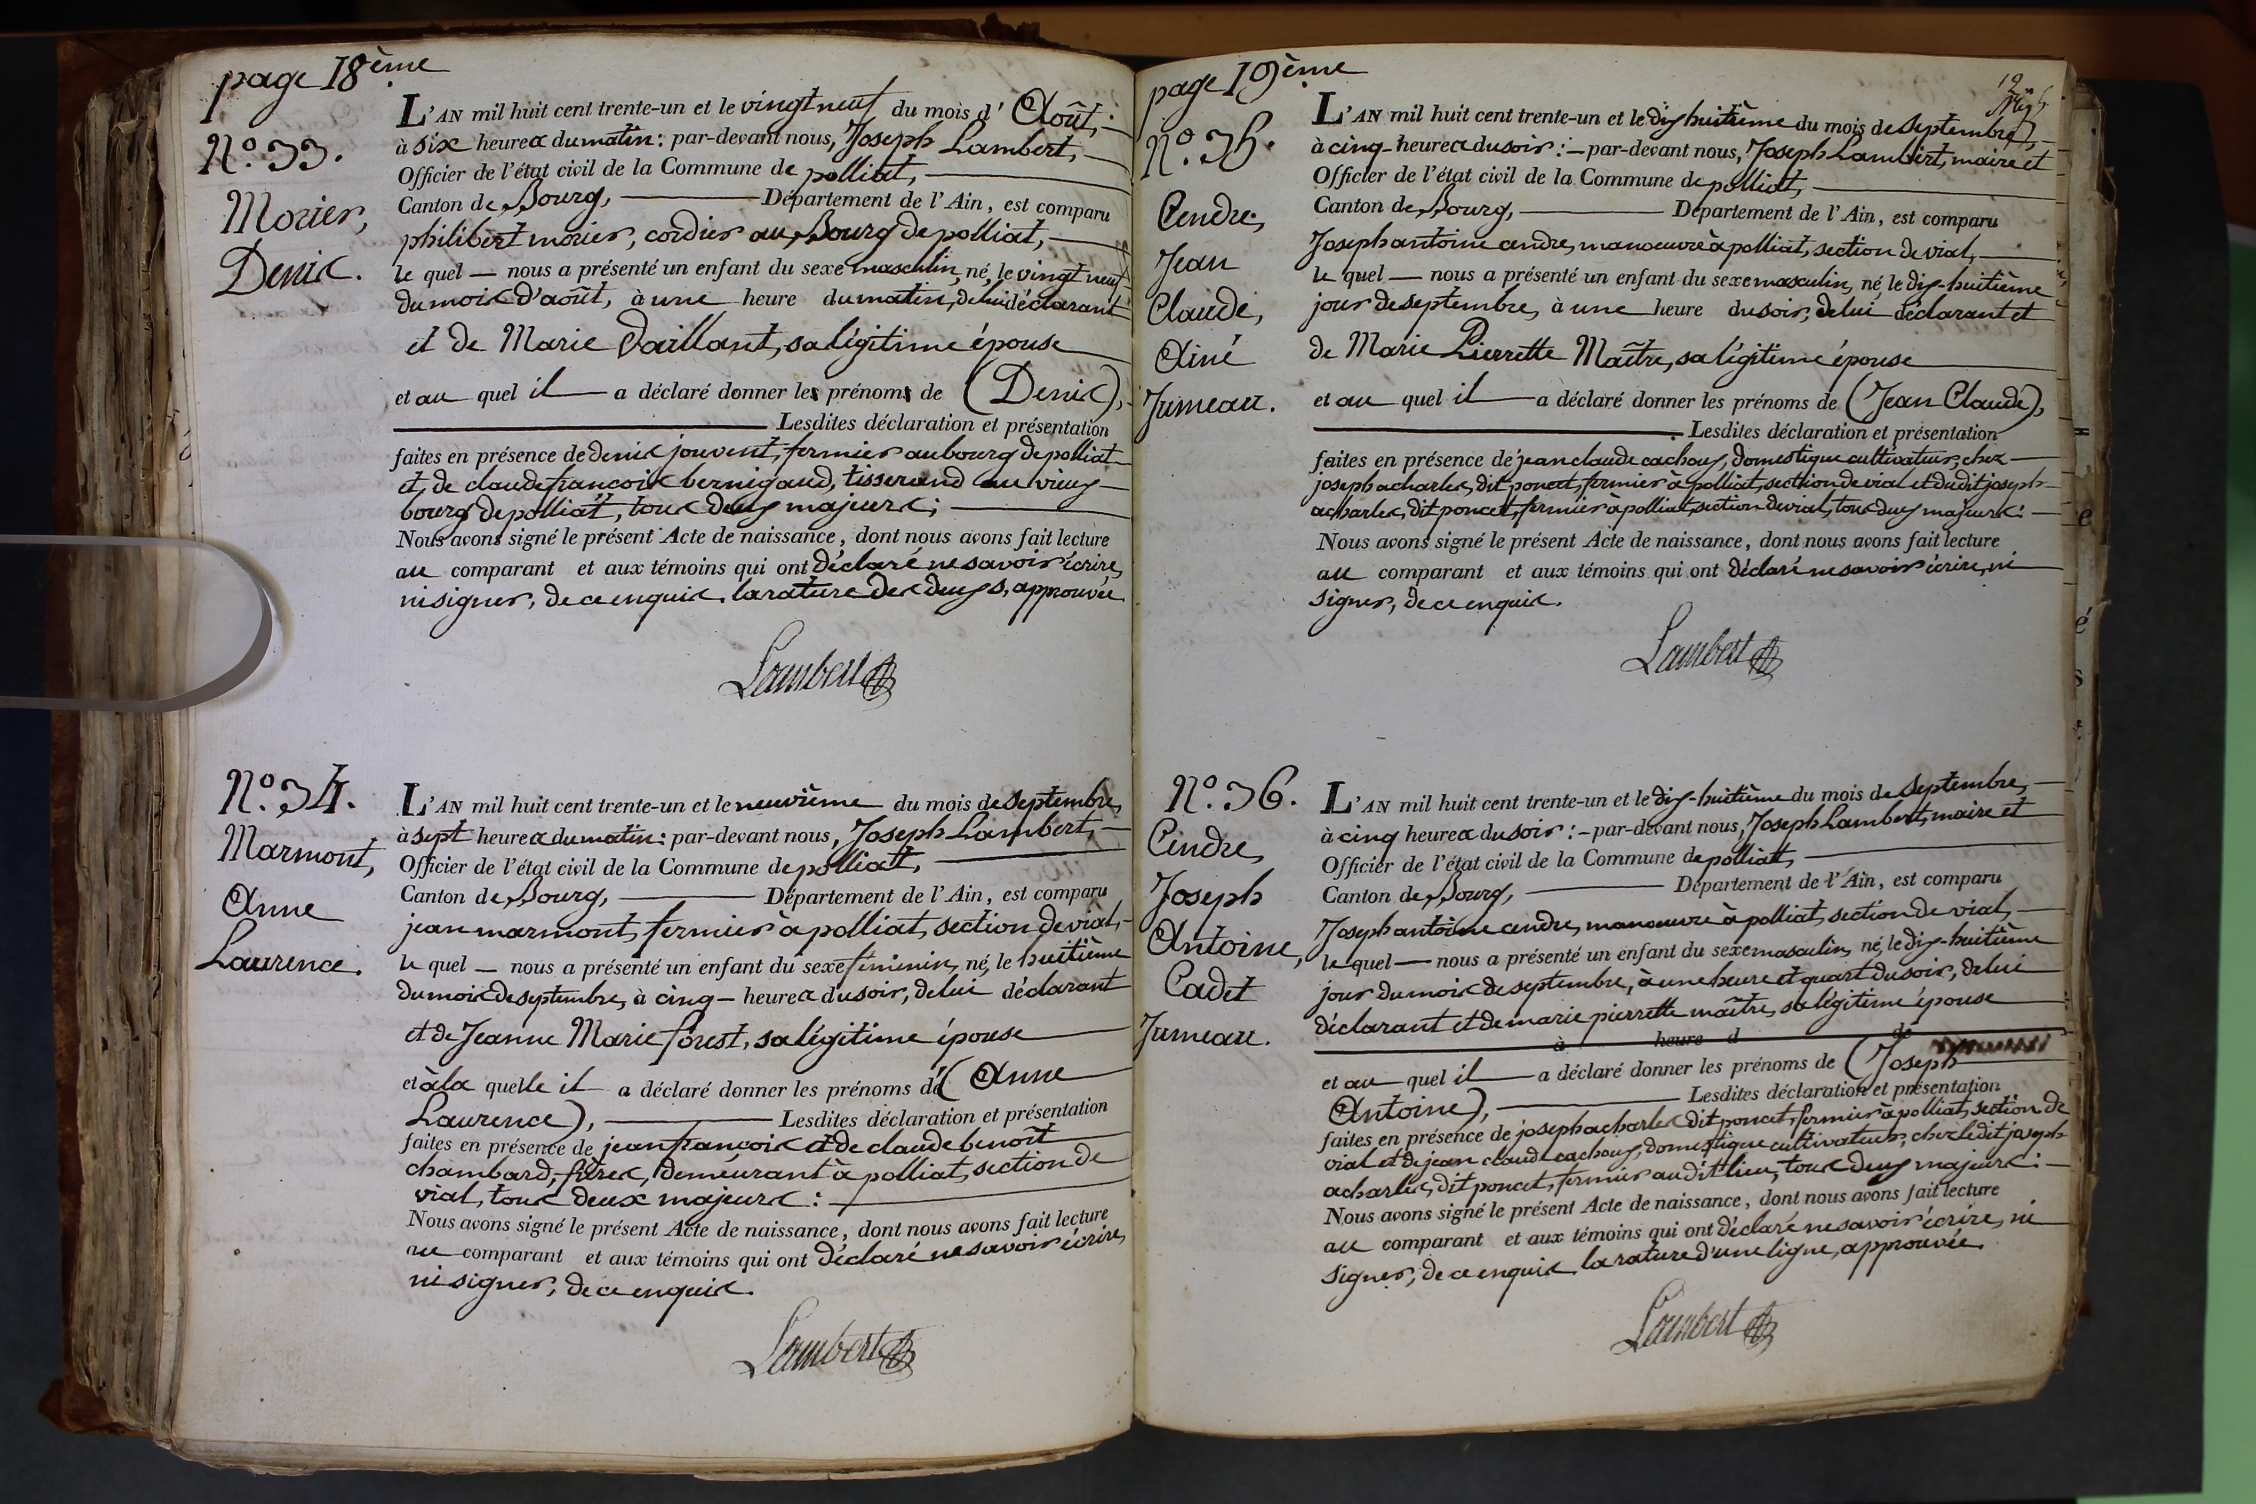 page 18ème
N.o 33.
Morier,
Denis.
L'AN mil huit cent trente-un et le vingt neuf du mois d' Août,
à six heures du matin : par-devant nous, Joseph Lambert,
Officier de l'état civil de la Commune de polliat,
Canton de Bourg, Département de l'Ain, est comparu
philibert morier, cordier au Bourg de polliat,
le quel nous a présenté un enfant du sexe masculin, né, le vingt neuf
du mois d'août, à une heure du matin, de lui déclarant
et de Marie Vaillant, sa légitime épouse
et au quel il a déclaré donner les prénoms de (Denis),
Lesdites déclaration et présentation
faites en présence de denis jouvent, fermier au bourg de polliat
et de claude françois bernigaud, tisserand au vieux
bourg de polliat, tous deux majeurs ;
Nous avons signé le présent Acte de naissance, dont nous avons fait lecture
au comparant et aux témoins qui ont déclaré ne savoir écrire,
ni signer, de ce enquis. la rature des deux s, approuvée
Lambert
N.o 34.
Marmont,
Anne
Laurence.
L'AN mil huit cent trente-un et le neuvième du mois de septembre,
à sept heures du matin : par-devant nous, Joseph Lambert,
Officier de l'état civil de la Commune de polliat,
Canton de Bourg, Département de l'Ain, est comparu
jean marmont, fermier à polliat, section de vial,
le quel nous a présenté un enfant du sexe féminin, né, le huitième
du mois de septembre, à cinq heures du soir, de lui déclarant
et de Jeanne Marie forest, sa légitime épouse
et à la quelle il a déclaré donner les prénoms de (Anne
Laurence), Lesdites déclaration et présentation
faites en présence de jean françois et de claude benoît
chambard, frères, demeurant à polliat, section de
vial, tous deux majeurs :
Nous avons signé le présent Acte de naissance, dont nous avons fait lecture
au comparant et aux témoins qui ont déclaré ne savoir écrire,
ni signer, de ce enquis.
Lambert
page 19ème
N.o 35.
Cendre,
Jean
Claude,
Ainé
Jumeau.
L'AN mil huit cent trente-un et le dix huitième du mois de septembre,
à cinq heures du soir : par-devant nous, Joseph Lambert, maire et
Officier de l'état civil de la Commune de polliat,
Canton de Bourg, Département de l'Ain, est comparu
Joseph antoine cendre, manoeuvre à polliat, section de vial,
le quel nous a présenté un enfant du sexe masculin, né, le dix-huitième
jour de septembre, à une heure du soir, de lui déclarant et
de Marie Pierrette Maître, sa légitime épouse
et au quel il a déclaré donner les prénoms de (Jean Claude),
Lesdites déclaration et présentation
faites en présence de jean claude cachoux, domestique cultivateur, chez
joseph acharles, dit poncet, fermier à polliat, section de vial et dudit joseph
acharles, dit poncet, fermier à polliat, section de vial, tous deux majeurs :
Nous avons signé le présent Acte de naissance, dont nous avons fait lecture
au comparant et aux témoins qui ont déclaré ne savoir écrire, ni
signer, de ce enquis.
Lambert
N.o 36.
Cendre,
Joseph
Antoine,
Cadet
Jumeau.
L'AN mil huit cent trente-un et le dix-huitième du mois de septembre,
à cinq heures du soir : par-devant nous, Joseph Lambert, maire et
Officier de l'état civil de la Commune de polliat,
Canton de Bourg, Département de l'Ain, est comparu
Joseph antoine cendre, manoeuvre à polliat, section de vial,
le quel nous a présenté un enfant du sexe masculin, né, le dix-huitième
jour du mois de septembre, à une heure et quart du soir, de lui
déclarant et de marie pierrette maître, sa légitime épouse
à heure d de
et au quel il a déclaré donner les prénoms de (Joseph
Antoine), Lesdites déclaration et présentation
faites en présence de joseph acharles dit poncet, fermier à polliat, section de
vial et de jean claude cachoux, domestique cultivateur, chez ledit joseph
acharles, dit poncet, fermier au dit lieu, tous deux majeurs :
Nous avons signé le présent Acte de naissance, dont nous avons fait lecture
au comparant et aux témoins qui ont déclaré ne savoir écrire, ni
signer, de ce enquis. la rature d'une ligne, approuvée.
Lambert